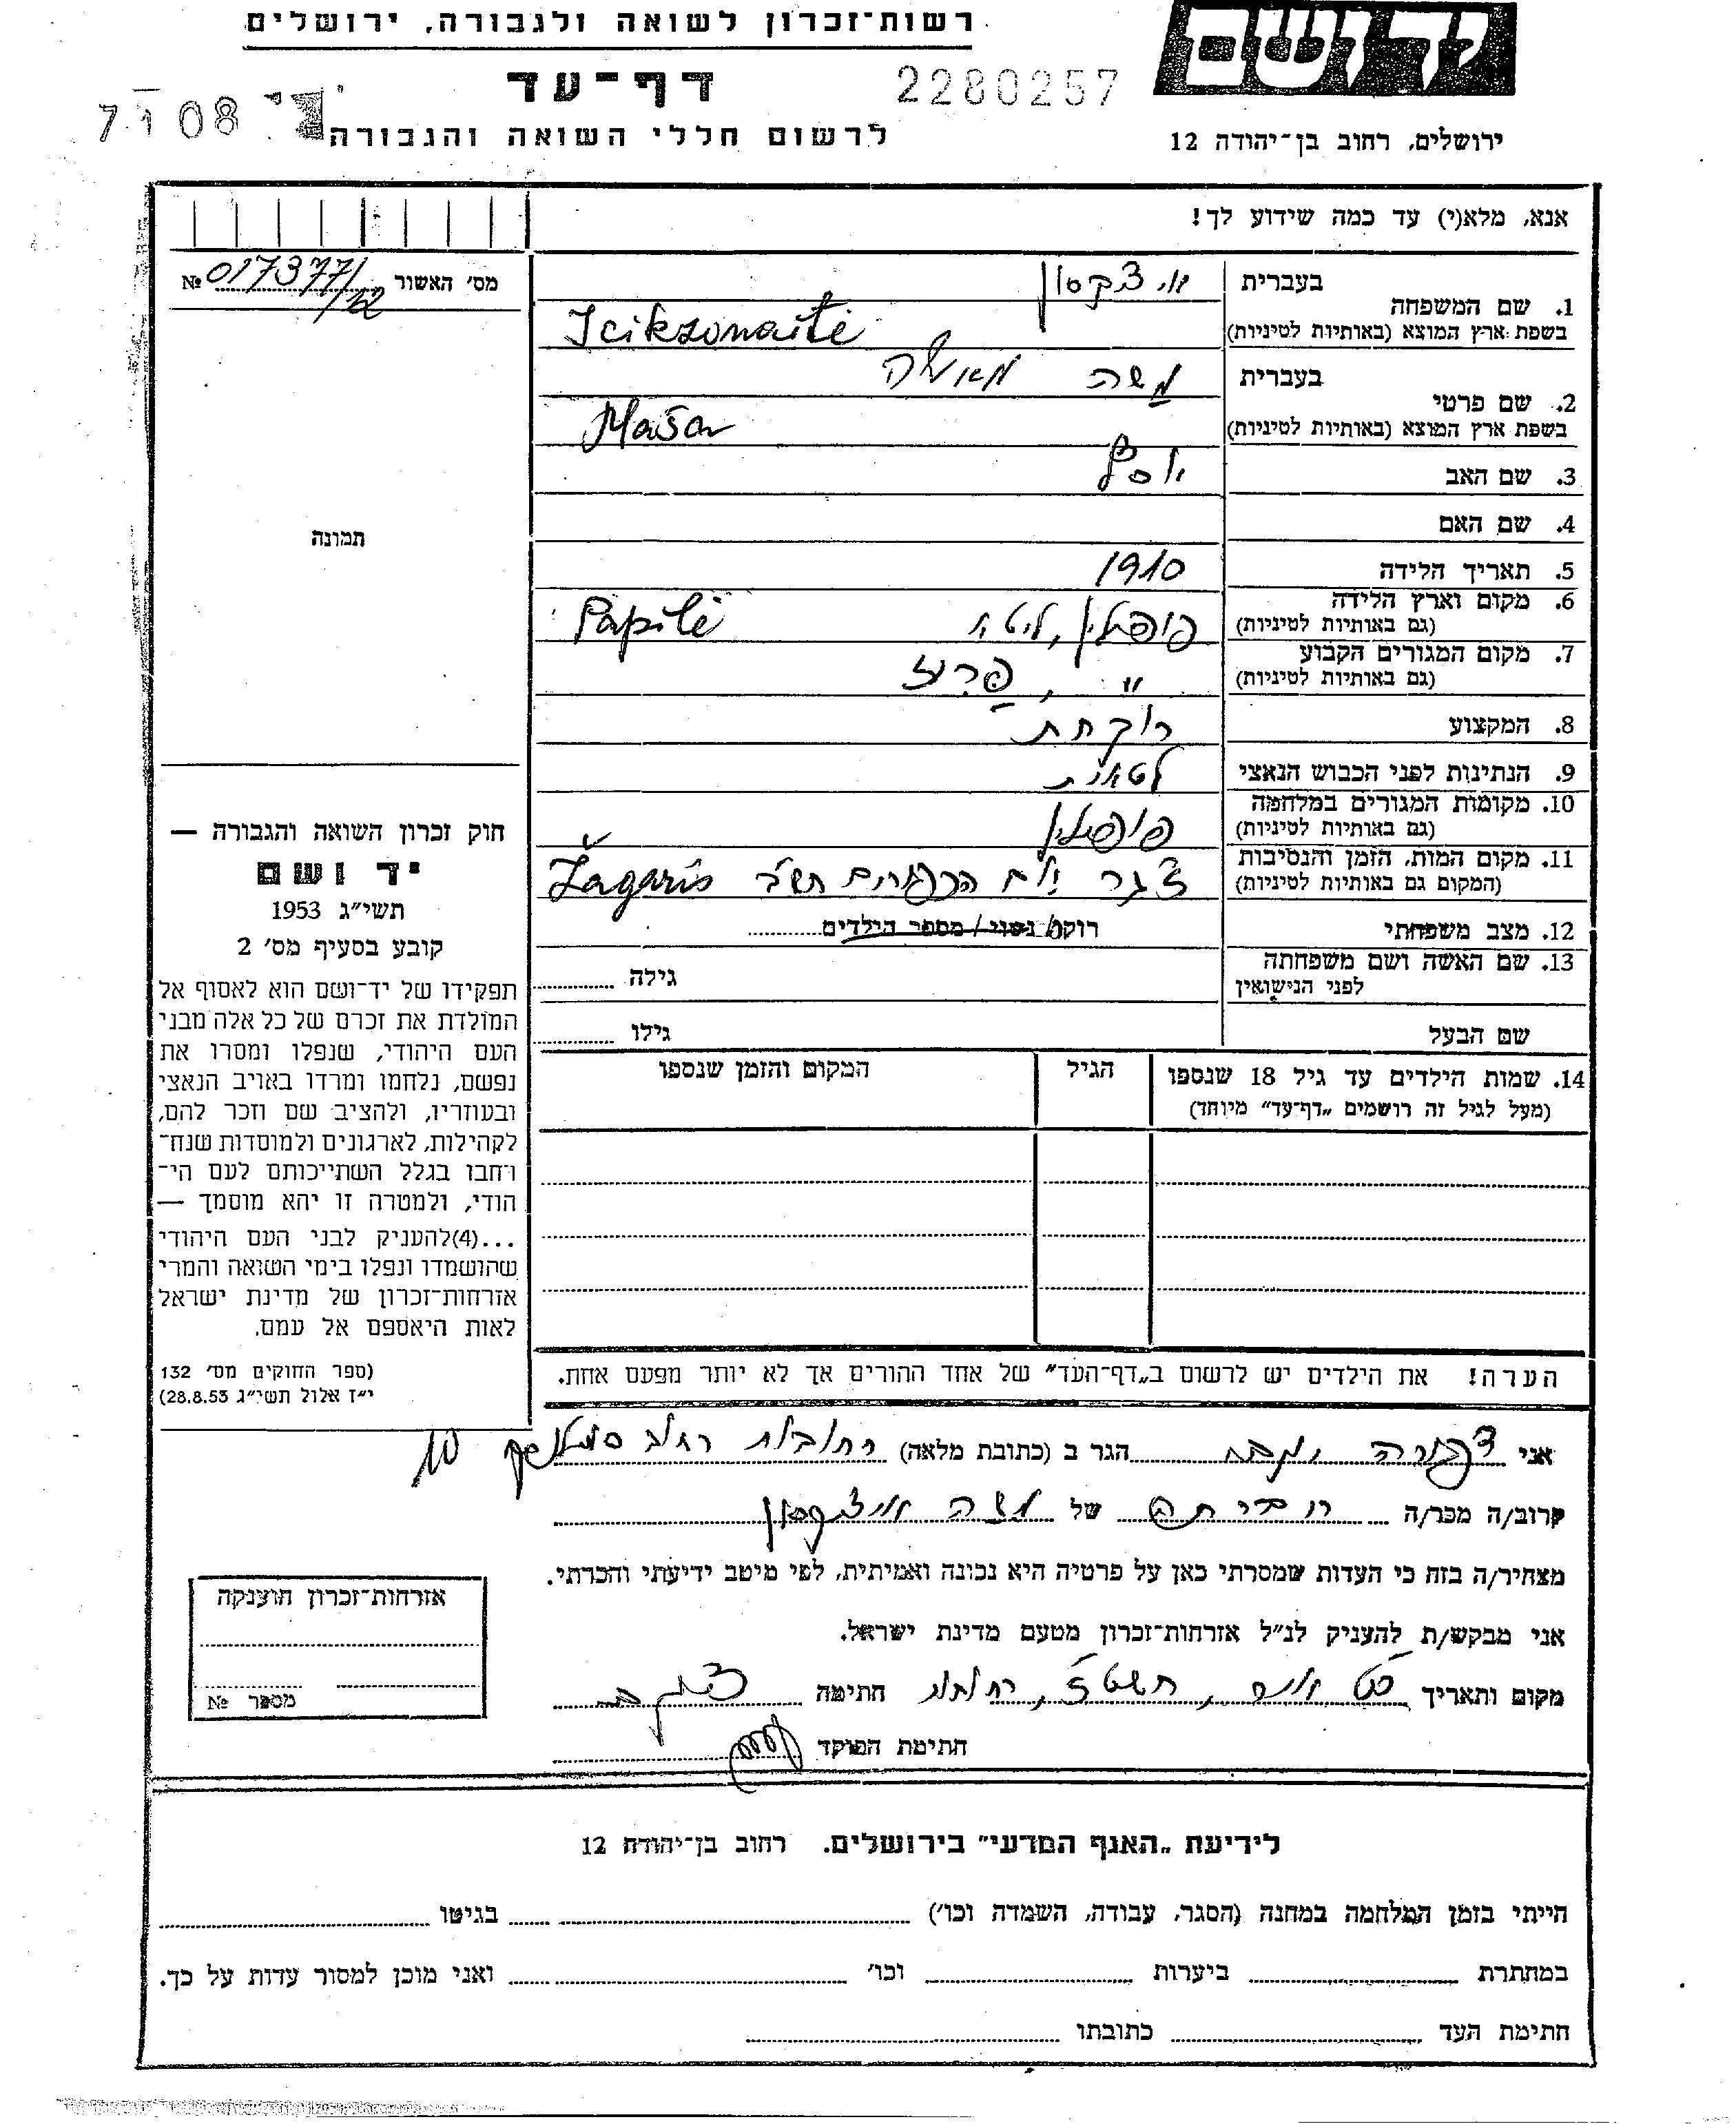 רשות־זכרון לשואה ולגבורה, ירושלים
יד ושם
דף־עד
2280257
7 1 08
לרשום חללי השואה והגבורה
ירושלים, רחוב בן־יהודה 12
אנא, מלא(י) עד כמה שידוע לך!
מס׳ האשור
№ 017377/12
1. שם המשפחה
בעברית
איצקסון
בשפת ארץ המוצא (באותיות לטיניות)
Iciksonaitė
2. שם פרטי
בעברית
משה מאשה
בשפת ארץ המוצא (באותיות לטיניות)
Maša
3. שם האב
יוסף
4. שם האם
5. תאריך הלידה
1910
6. מקום וארץ הלידה
(גם באותיות לטיניות)
פופילין, ליטא
Papilė
7. מקום המגורים הקבוע
(גם באותיות לטיניות)
" ,
8. המקצוע
רוקחת
9. הנתינות לפני הכבוש הנאצי
לטאית
10. מקומות המגורים במלחמה
(גם באותיות לטיניות)
פופילין
11. מקום המות, הזמן והנסיבות
(המקום גם באותיות לטיניות)
ז׳גר הכפורים תש״ב Žagarės
12. מצב משפחתי
רוקה/ נשוי/ מספר הילדים
13. שם האשה ושם משפחתה
לפני הנישואין
גילה
שם הבעל
גילו
14. שמות הילדים עד גיל 18 שנספו
(מעל לגיל זה רושמים „דף־עד״ מיוחד)
הגיל
המקום והזמן שנספו
הערה! את הילדים יש לרשום ב„דף־העד״ של אחד ההורים אך לא יותר מפעם אחת.
תמונה
חוק זכרון השואה והגבורה —
יד ושם
תשי״ג 1953
קובע בסעיף מס׳ 2
תפקידו של יד־ושם הוא לאסוף אל
המולדת את זכרם של כל אלה מבני
העם היהודי, שנפלו ומסרו את
נפשם, נלחמו ומרדו באויב הנאצי
ובעוזריו, ולהציב שם וזכר להם,
לקהילות, לארגונים ולמוסדות שנח־
רחבו בגלל השתייכותם לעם הי־
הודי, ולמטרה זו יהא מוסמך —
...(4)להעניק לבני העם היהודי
שהושמדו ונפלו בימי השואה והמרי
אזרחות־זכרון של מדינת ישראל
לאות היאספם אל עמם.
(ספר החוקים מס׳ 132
י״ז אלול תשי״ג 28.8.53)
אני צפורה הגר ב (כתובת מלאה) רחובות רחוב 10
קרוב/ה מכר/ה של משה איצקסון
מצהיר/ה בזה כי העדות שמסרתי כאן על פרטיה היא נכונה ואמיתית, לפי מיטב ידיעתי והכרתי.
אני מבקש/ת להעניק לנ״ל אזרחות־זכרון מטעם מדינת ישראל.
מקום ותאריך רחובות חתימה
חתימת הפוקד
אזרחות־זכרון הוענקה
מספר №
לידיעת „האגף המדעי״ בירושלים. רחוב בן־יהודה 12
הייתי בזמן המלחמה במחנה (הסגר, עבודה, השמדה וכו׳) בגיטו
במחתרת ביערות וכו׳ ואני מוכן למסור עדות על כך.
חתימת העד כתובתו